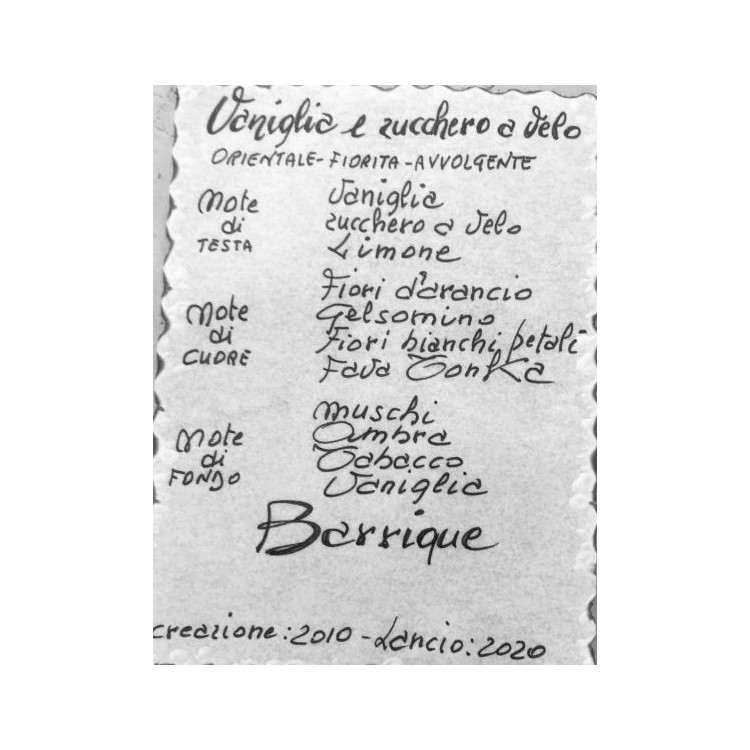 Vaniglia e zucchero a velo
ORIENTALE-FIORITA-AVVOLGENTE
Note di TESTA
Vaniglia
zucchero a velo
Limone
Note di CUORE
Fiori d'arancio
Gelsomino
Fiori bianchi, petali
Fava Tonka
Note di FONDO
muschi
Ambra
Tabacco
Vaniglia
Barrique
creazione:2010-Lancio:2020